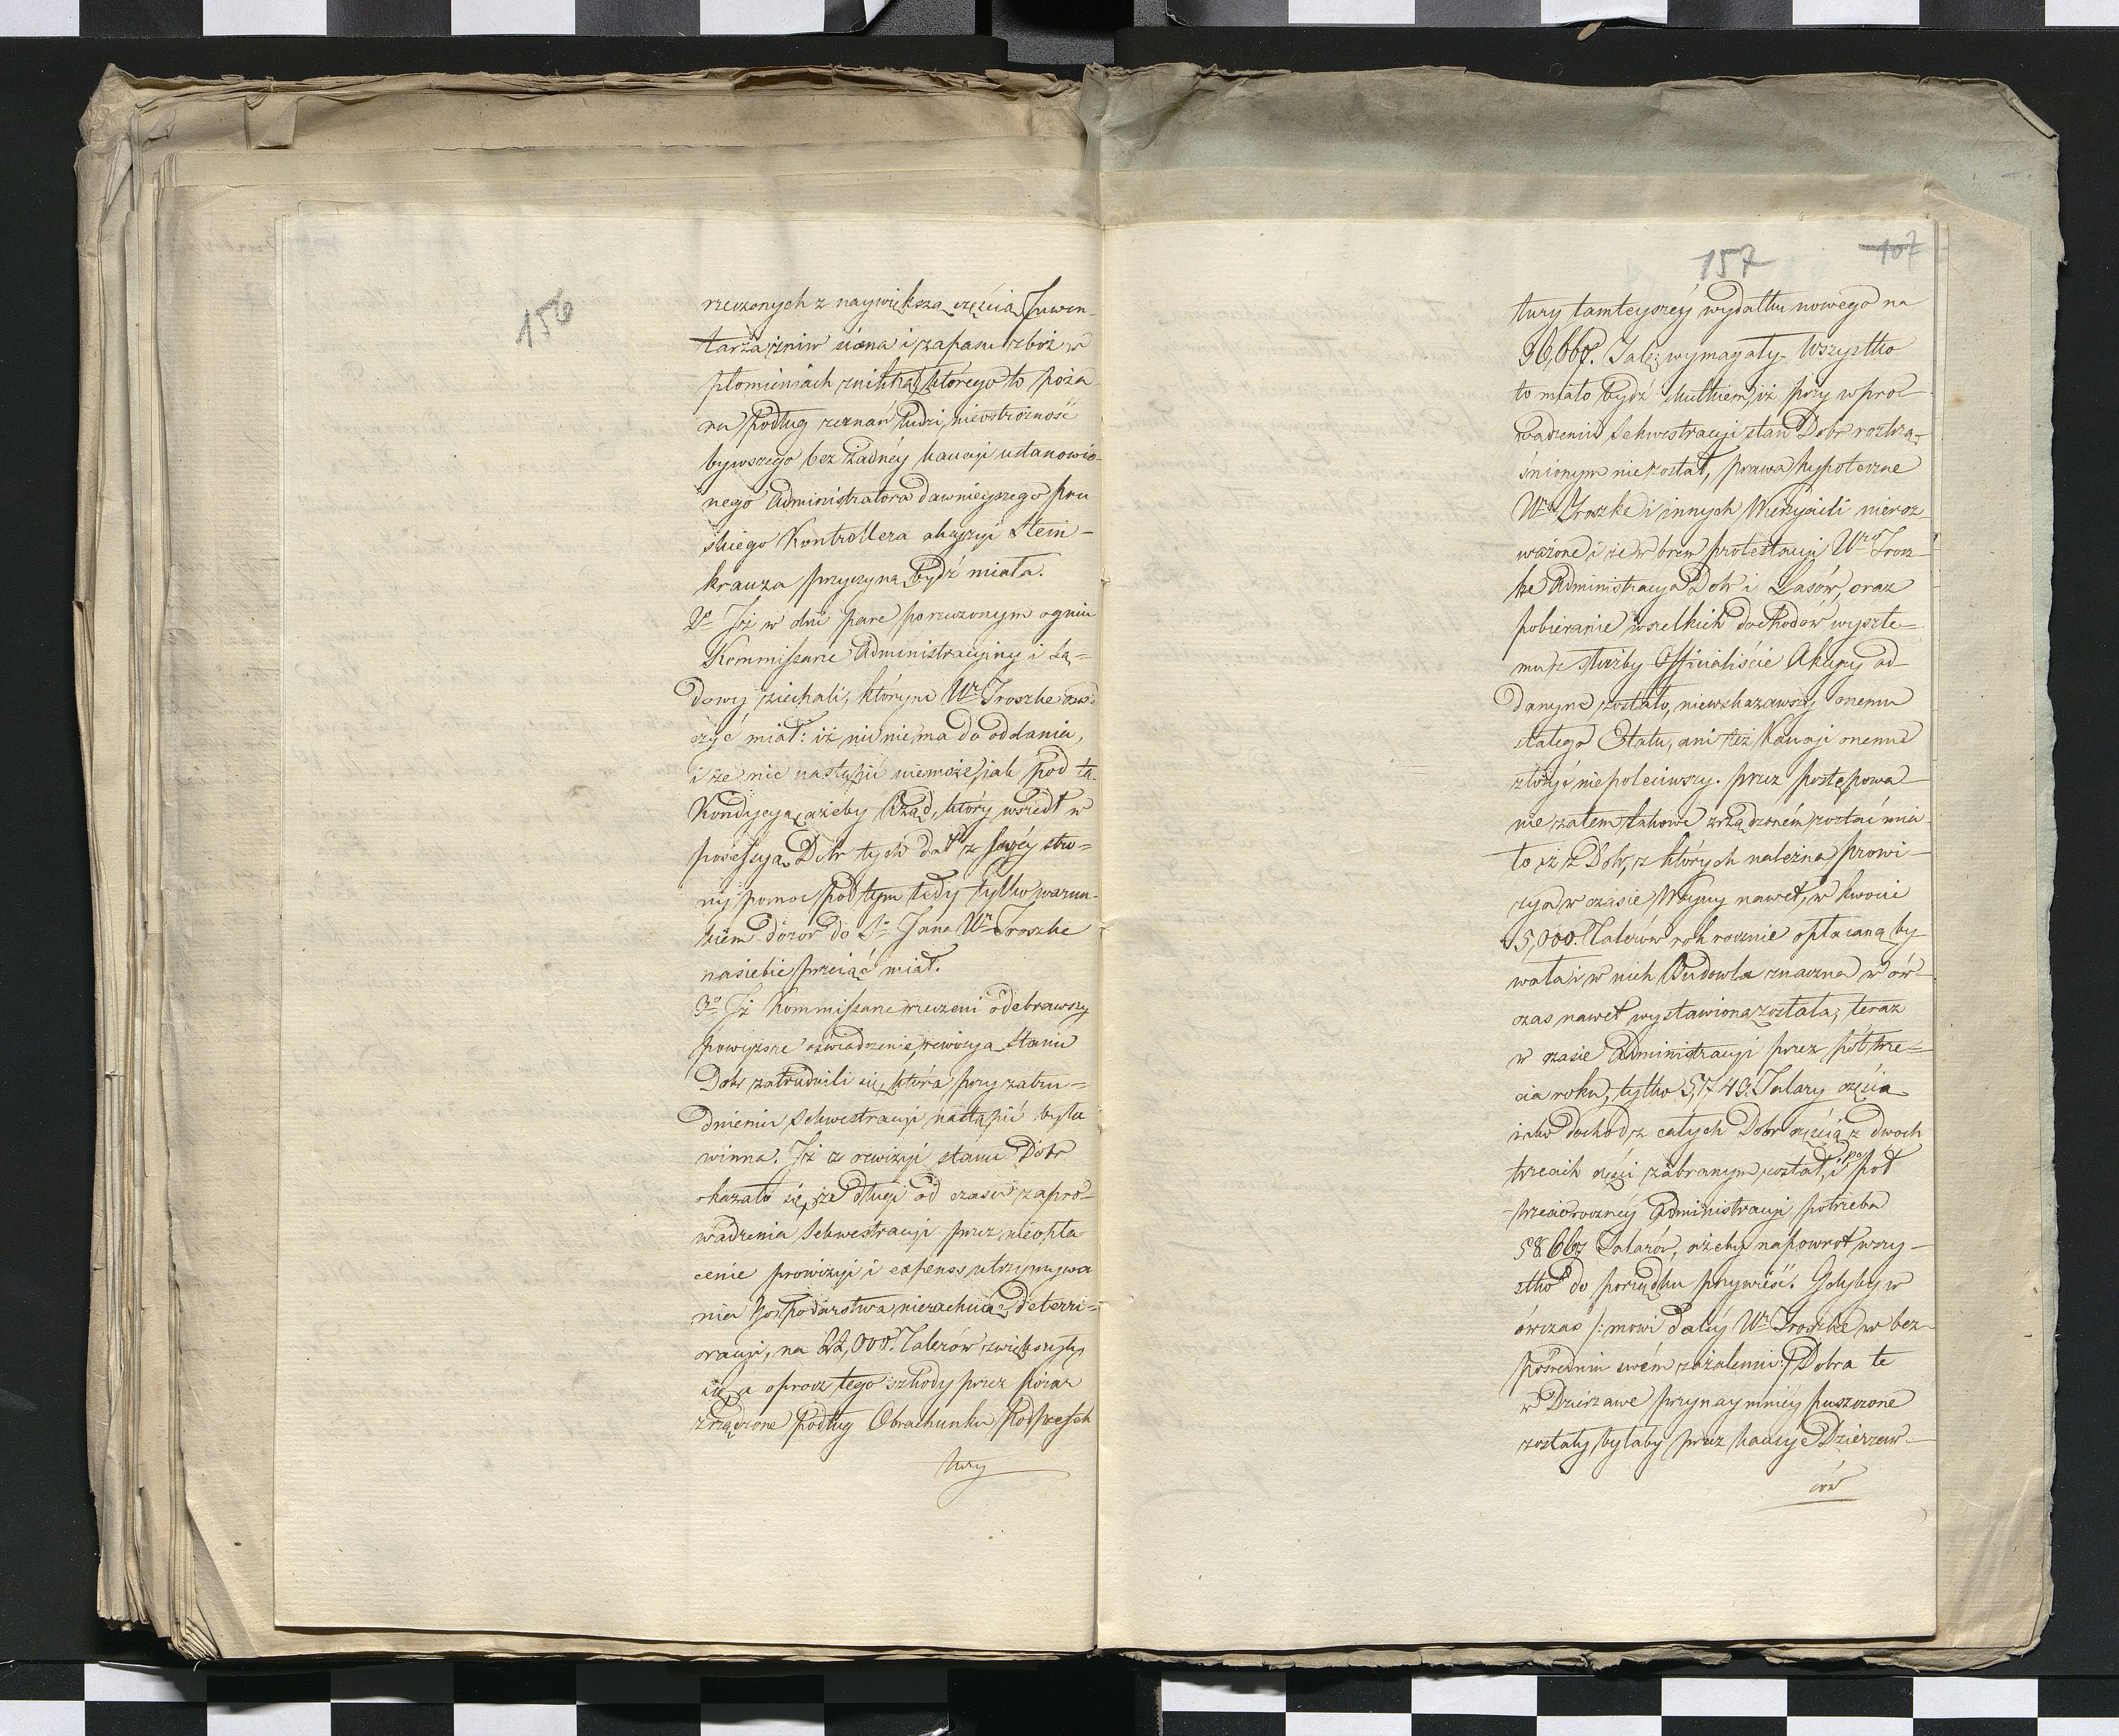 156
rzeczonych z naywiększą częścią Inwen-
tarza żniw siana i zapasu zbóż w
płomieniach znikł, którego to poża-
ru podług zeznań ludzi nieostrożność
bywszego bez żadnéy kaucyi ustanowio-
nego Administratora dawnieyszego pru
skiego Kontrollera akcyzyi Stein-
krauza przyczyną bydź miała.
2o Iż w dni parę po rzeczonym ogniu
Kommissarze Administracyiny i Są-
dowy ziechali, którym Wr Troszke
czyć miał: iż nic niema do oddania,
i że nic nastąpić niemoże jak pod tą
Kondycyą, ażeby Rząd, który wszedł w
possessyą Dóbr tych dał z swéy stro-
ny pomoc pod tym tedy tylko warun-
kiem dozór do S. Jana Wr Troszke
na siebie przeiąć miał.
3o Iż Kommissarze rzeczeni odebrawszy
powyższe oświadczenie, rewizyą Stanu
Dóbr zatrudnili się, która przy zatru-
dnieniu Sekwestracyi nastąpić była
winna. Iż z rewizyi stanu Dóbr
okazało się, że długi od czasu zapro-
wadzenia Sekwestracyi przez nieopła
cenie prowizyi i expens utrzymywa
nia Gospodarstwa, nierachuiąc deterri-
oracyi, na 22,000. Talerów zwiększyły
się, a oprocz tego szkody przez pożar
zrządzone podług Obrachunku Podprefek
tury
157
107
tury tamteyszéy wydatku nowego na
36,660. Tal: wymagały. Wszystko
to miało bydź skutkiem, iż przy wpro-
wadzeniu Sekwestracyi stan Dóbr roztrzą-
śnionym nie został, prawa hypoteczne
Wo Troszke i innych Wierzycieli nieroz-
ważone i że wbrew protestacyi Wgo Trosz-
ke Administracya Dóbr i Lasów, oraz
pobieranie wszelkich dochodów wyszłe-
mu z służby Officialiście Akcyzy od-
danym zostało, niewskazawszy onemu
stałego Etatu, ani też Kaucyi onemu
złożyć niepoleciwszy. przez postępowa-
nie zatem takowe zrządzoném zostać mia-
ło iż z Dóbr, z których należna prowi-
zya w czasie Woyny nawet, w kwocie
5,000. Talerów rok rocznie opłacaną by-
wała i w nich Budowla znaczna w ów-
czas nawet wystawiona została, teraz
w czasie Administracyi przez półtrze-
cia roku, tylko 5,743. Talary częścią
iako dochod z całych Dóbr częścią z dwoch
trzecich części zabranym został, i po pół
trzeciorocznéy Administracyi potrzeba
58,660 Talarów, ażeby napowrot wszy-
stko do porządku przywieść. Gdyby w
ówczas /: mowi daléy Wr Troszke w bez-
pośredniu swém zażaleniu:/ Dobra te
w Dzierzawę przynaymniéy puszczone
zostały, byłaby przez kaucye Dzierzaw-
ców